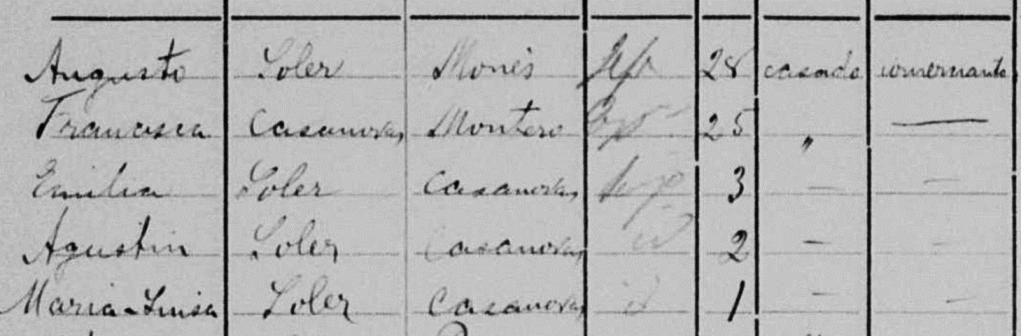 Augusto Soler Monés Jefe 28 casado comerciante
Francisca Casanovas Montero Esp 25 " —
Emilia Soler Casanovas hija 3 — —
Agustin Soler Casanovas id 2 — —
Maria-Luisa Soler Casanovas id 1 — —